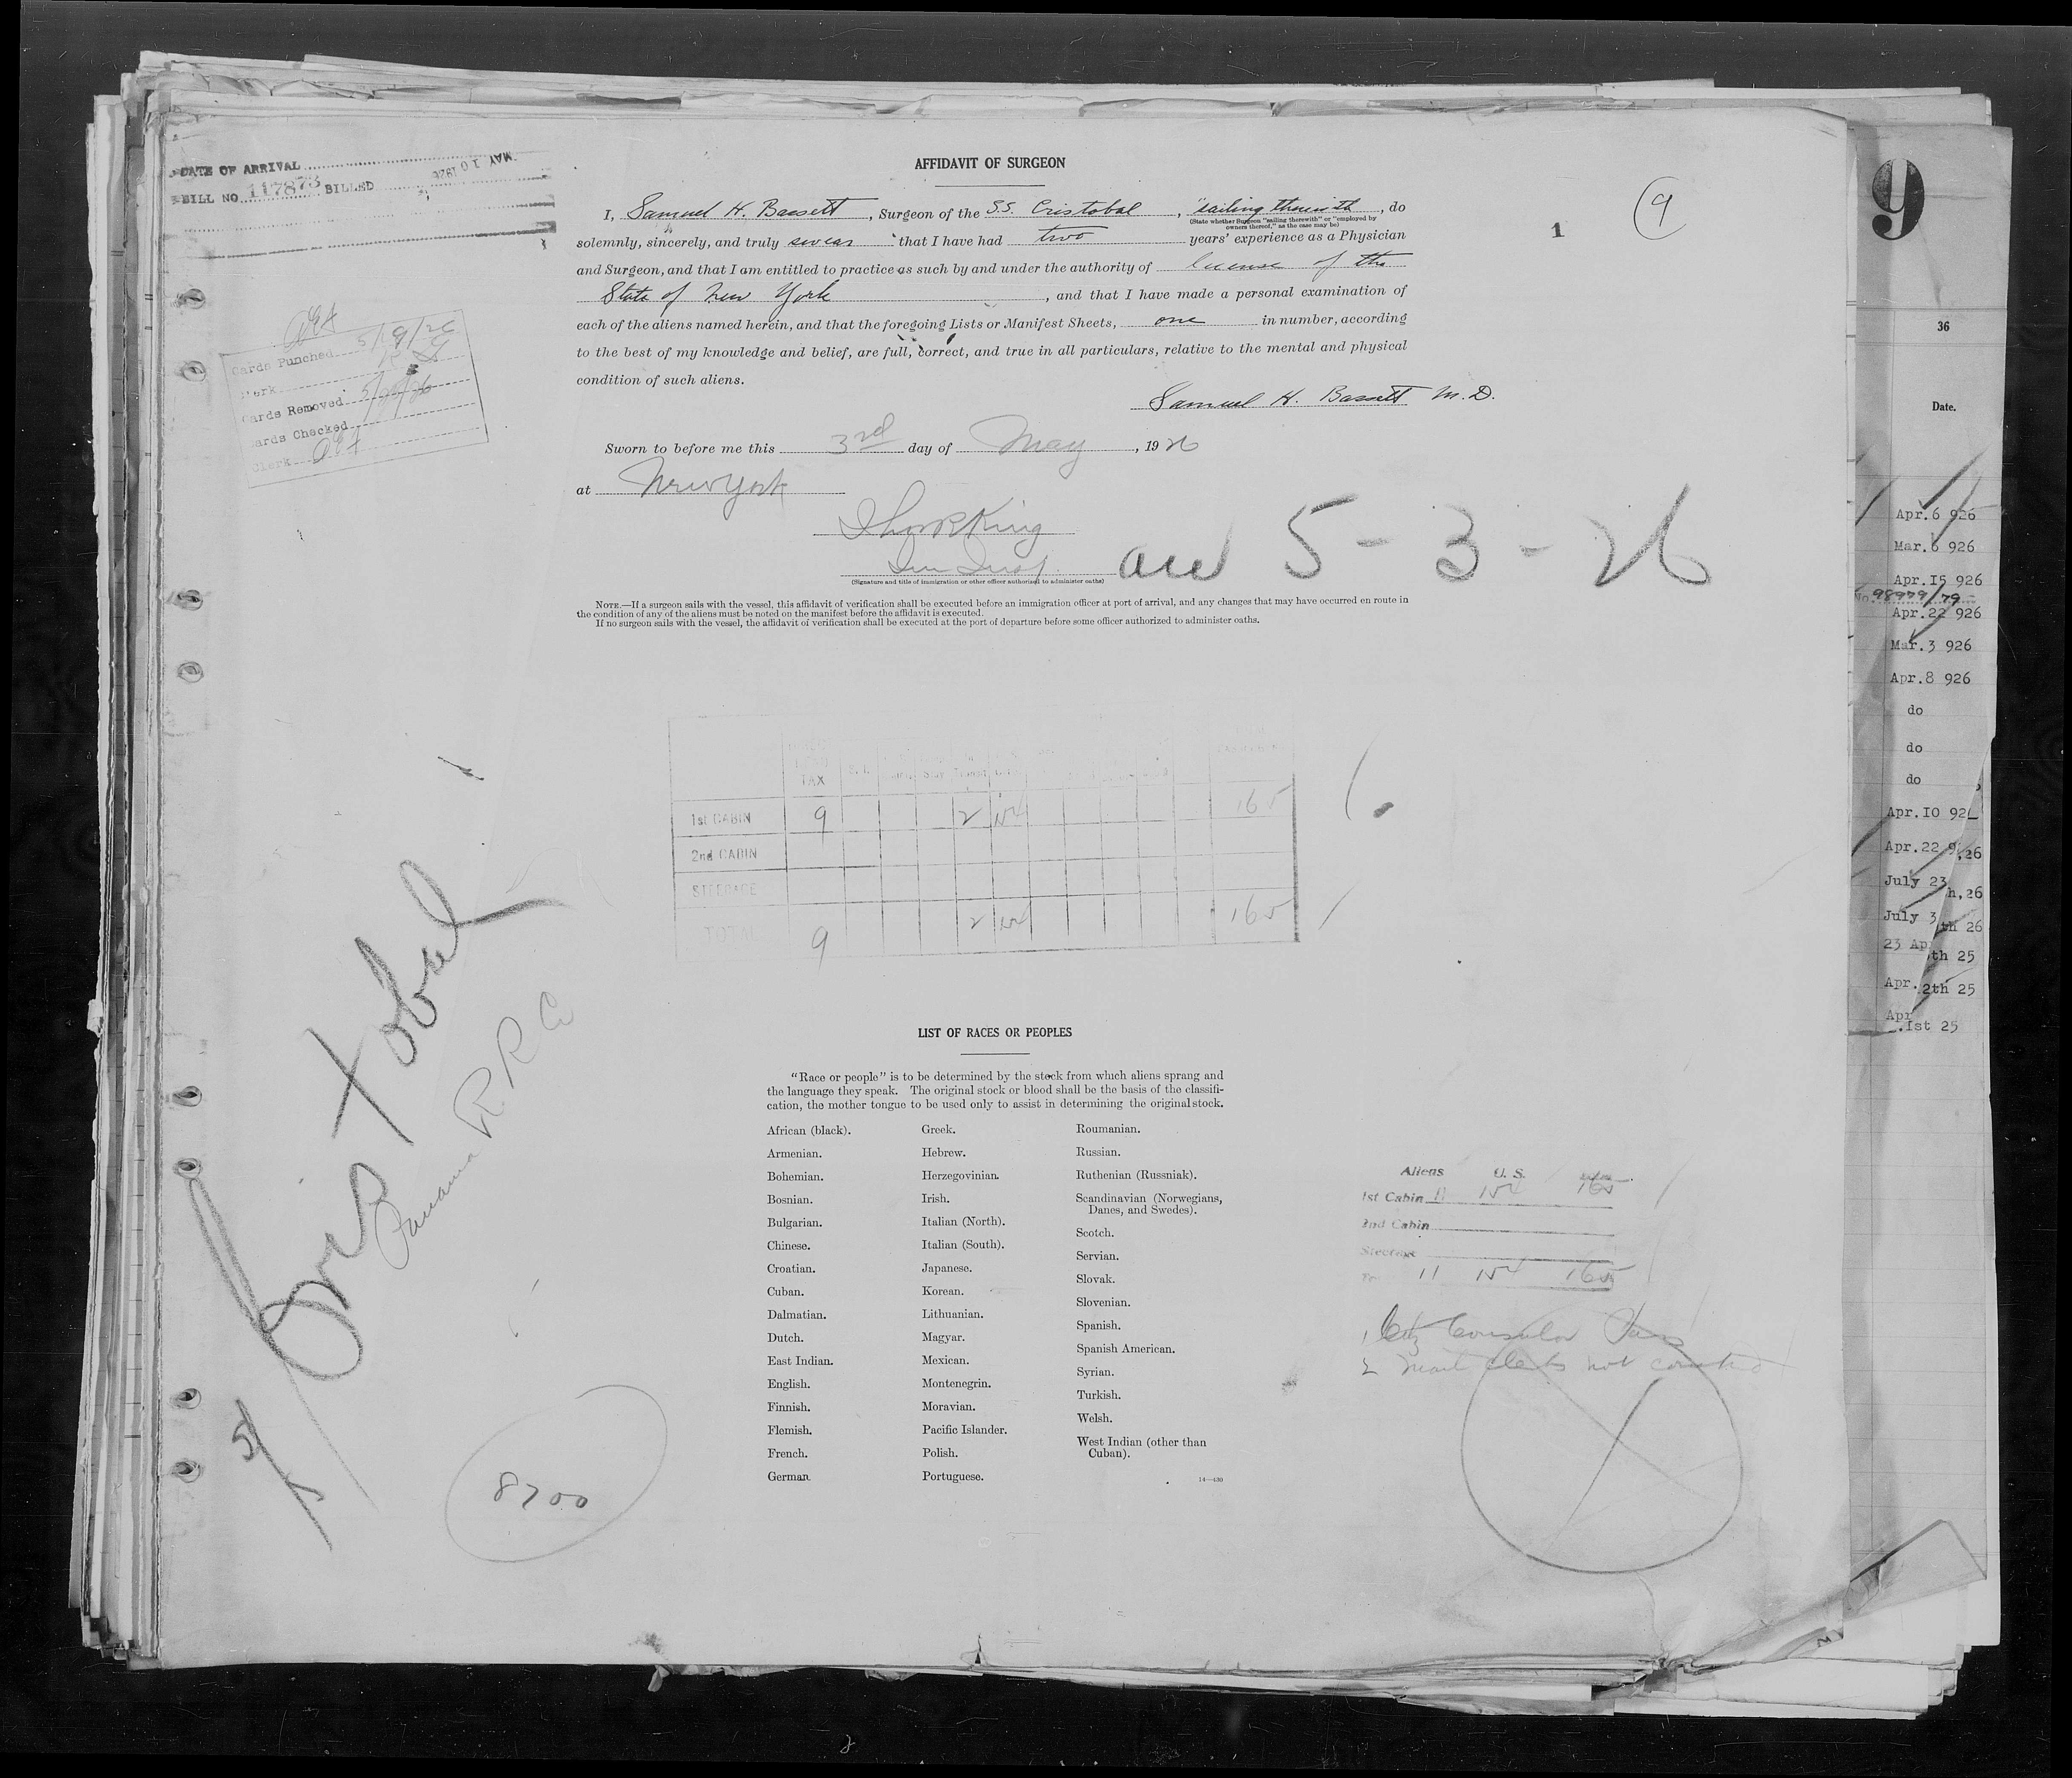 DATE OF ARRIVAL MAY 10 1926
BILL NO. 117873 BILLED
AFFIDAVIT OF SURGEON
I, Samuel H. Bassett, Surgeon of the S.S. Cristobal, "sailing therewith, do
(State whether Surgeon "sailing therewith" or "employed by
owners thereof," as the case may be)
solemnly, sincerely, and truly swear that I have had two years' experience as a Physician
and Surgeon, and that I am entitled to practice as such by and under the authority of license of the
State of New York, and that I have made a personal examination of
each of the aliens named herein, and that the foregoing Lists or Manifest Sheets, one in number, according
to the best of my knowledge and belief, are full, correct, and true in all particulars, relative to the mental and physical
condition of such aliens.
Samuel H. Bassett M.D.
Sworn to before me this 3rd day of May, 1926
at New York
5-3-26
(Signature and title of immigration or other officer authorized to administer oaths)
NOTE.—If a surgeon sails with the vessel, this affidavit of verification shall be executed before an immigration officer at port of arrival, and any changes that may have occurred en route in
the condition of any of the aliens must be noted on the manifest before the affidavit is executed.
If no surgeon sails with the vessel, the affidavit of verification shall be executed at the port of departure before some officer authorized to administer oaths.
1
9
9
Cards Punched 5/19/26
Clerk
Cards Removed
Cards Checked
Clerk
TAX
1st CABIN 9 2 154 165
2nd CABIN
STEERAGE
TOTAL 9 2 154 165
Cristobal
Panama R. R. Co
8700
LIST OF RACES OR PEOPLES
"Race or people" is to be determined by the stock from which aliens sprang and
the language they speak. The original stock or blood shall be the basis of the classifi-
cation, the mother tongue to be used only to assist in determining the original stock.
African (black).
Armenian.
Bohemian.
Bosnian.
Bulgarian.
Chinese.
Croatian.
Cuban.
Dalmatian.
Dutch.
East Indian.
English.
Finnish.
Flemish.
French.
German
Greek.
Hebrew.
Herzegovinian.
Irish.
Italian (North).
Italian (South).
Japanese.
Korean.
Lithuanian.
Magyar.
Mexican.
Montenegrin.
Moravian.
Pacific Islander.
Polish.
Portuguese.
Roumanian.
Russian.
Ruthenian (Russniak).
Scandinavian (Norwegians,
Danes, and Swedes).
Scotch.
Servian.
Slovak.
Slovenian.
Spanish.
Spanish American.
Syrian.
Turkish.
Welsh.
West Indian (other than
Cuban).
14—430
Aliens U. S.
1st Cabin 11 154 165
2nd Cabin
Steerage
11 154 165
1 Citz Consular
2 mail clerks not counted
36
Date.
Apr.6 926
Mar.6 926
Apr.15 926
No. 98979/79
Apr.22 926
Mar.3 926
Apr.8 926
do
do
do
Apr.10 92
Apr.22 9 ,26
July 23 h,26
July 3 th 26
23 Ap th 25
Apr. 2th 25
Apr .1st 25